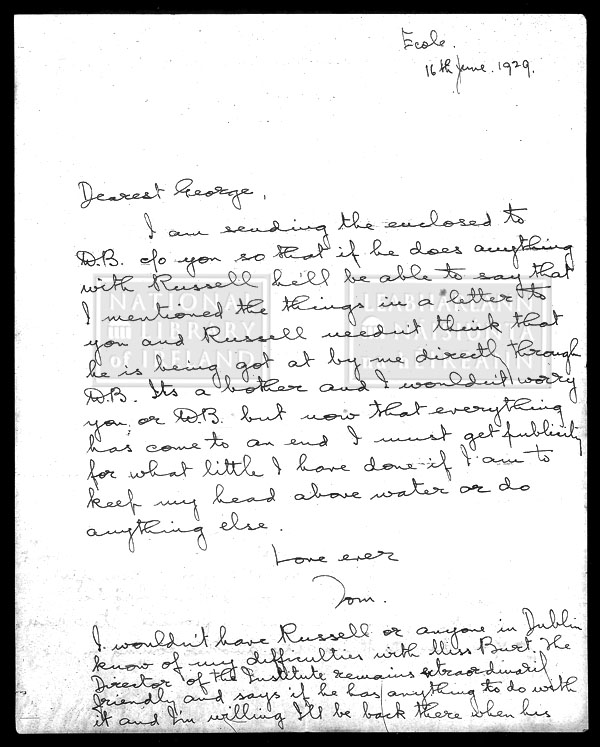 Ecole.
16th June. 1929.
Dearest George,
I am sending the enclosed to
D.B. c/o you so that if he does anything
with Russell he'll be able to say that
I mentioned the things in a letter to
you and Russell needn't think that
he is being got at by me directly through
D.B. Its a bother and I wouldn't worry
you or D.B. but now that everything
has come to an end I must get publicity
for what little I have done if I am to
keep my head above water or do
anything else.
Love ever
Tom.
I wouldn't have Russell or anyone in Dublin
know of my difficulties with Miss Burt. The
Director of the Institute remains extraordinarily
friendly and says if he has anything to do with
it and I'm willing I'll be back there when his
NATIONAL
LIBRARY
of IRELAND
LEABHARLANN
NÁISIÚNTA
na hÉIREANN